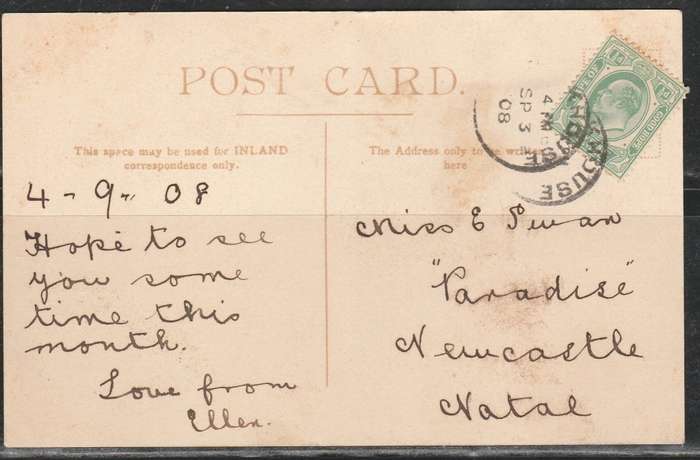 POST CARD.
This space may be used for INLAND
correspondence only.
The Address only to be written
here
4 PM
SP 3
08
4 - 9 - 08
Hope to see
you some
time this
month.
Love from
Ellen.
Miss E Swan
"Paradise"
Newcastle
Natal